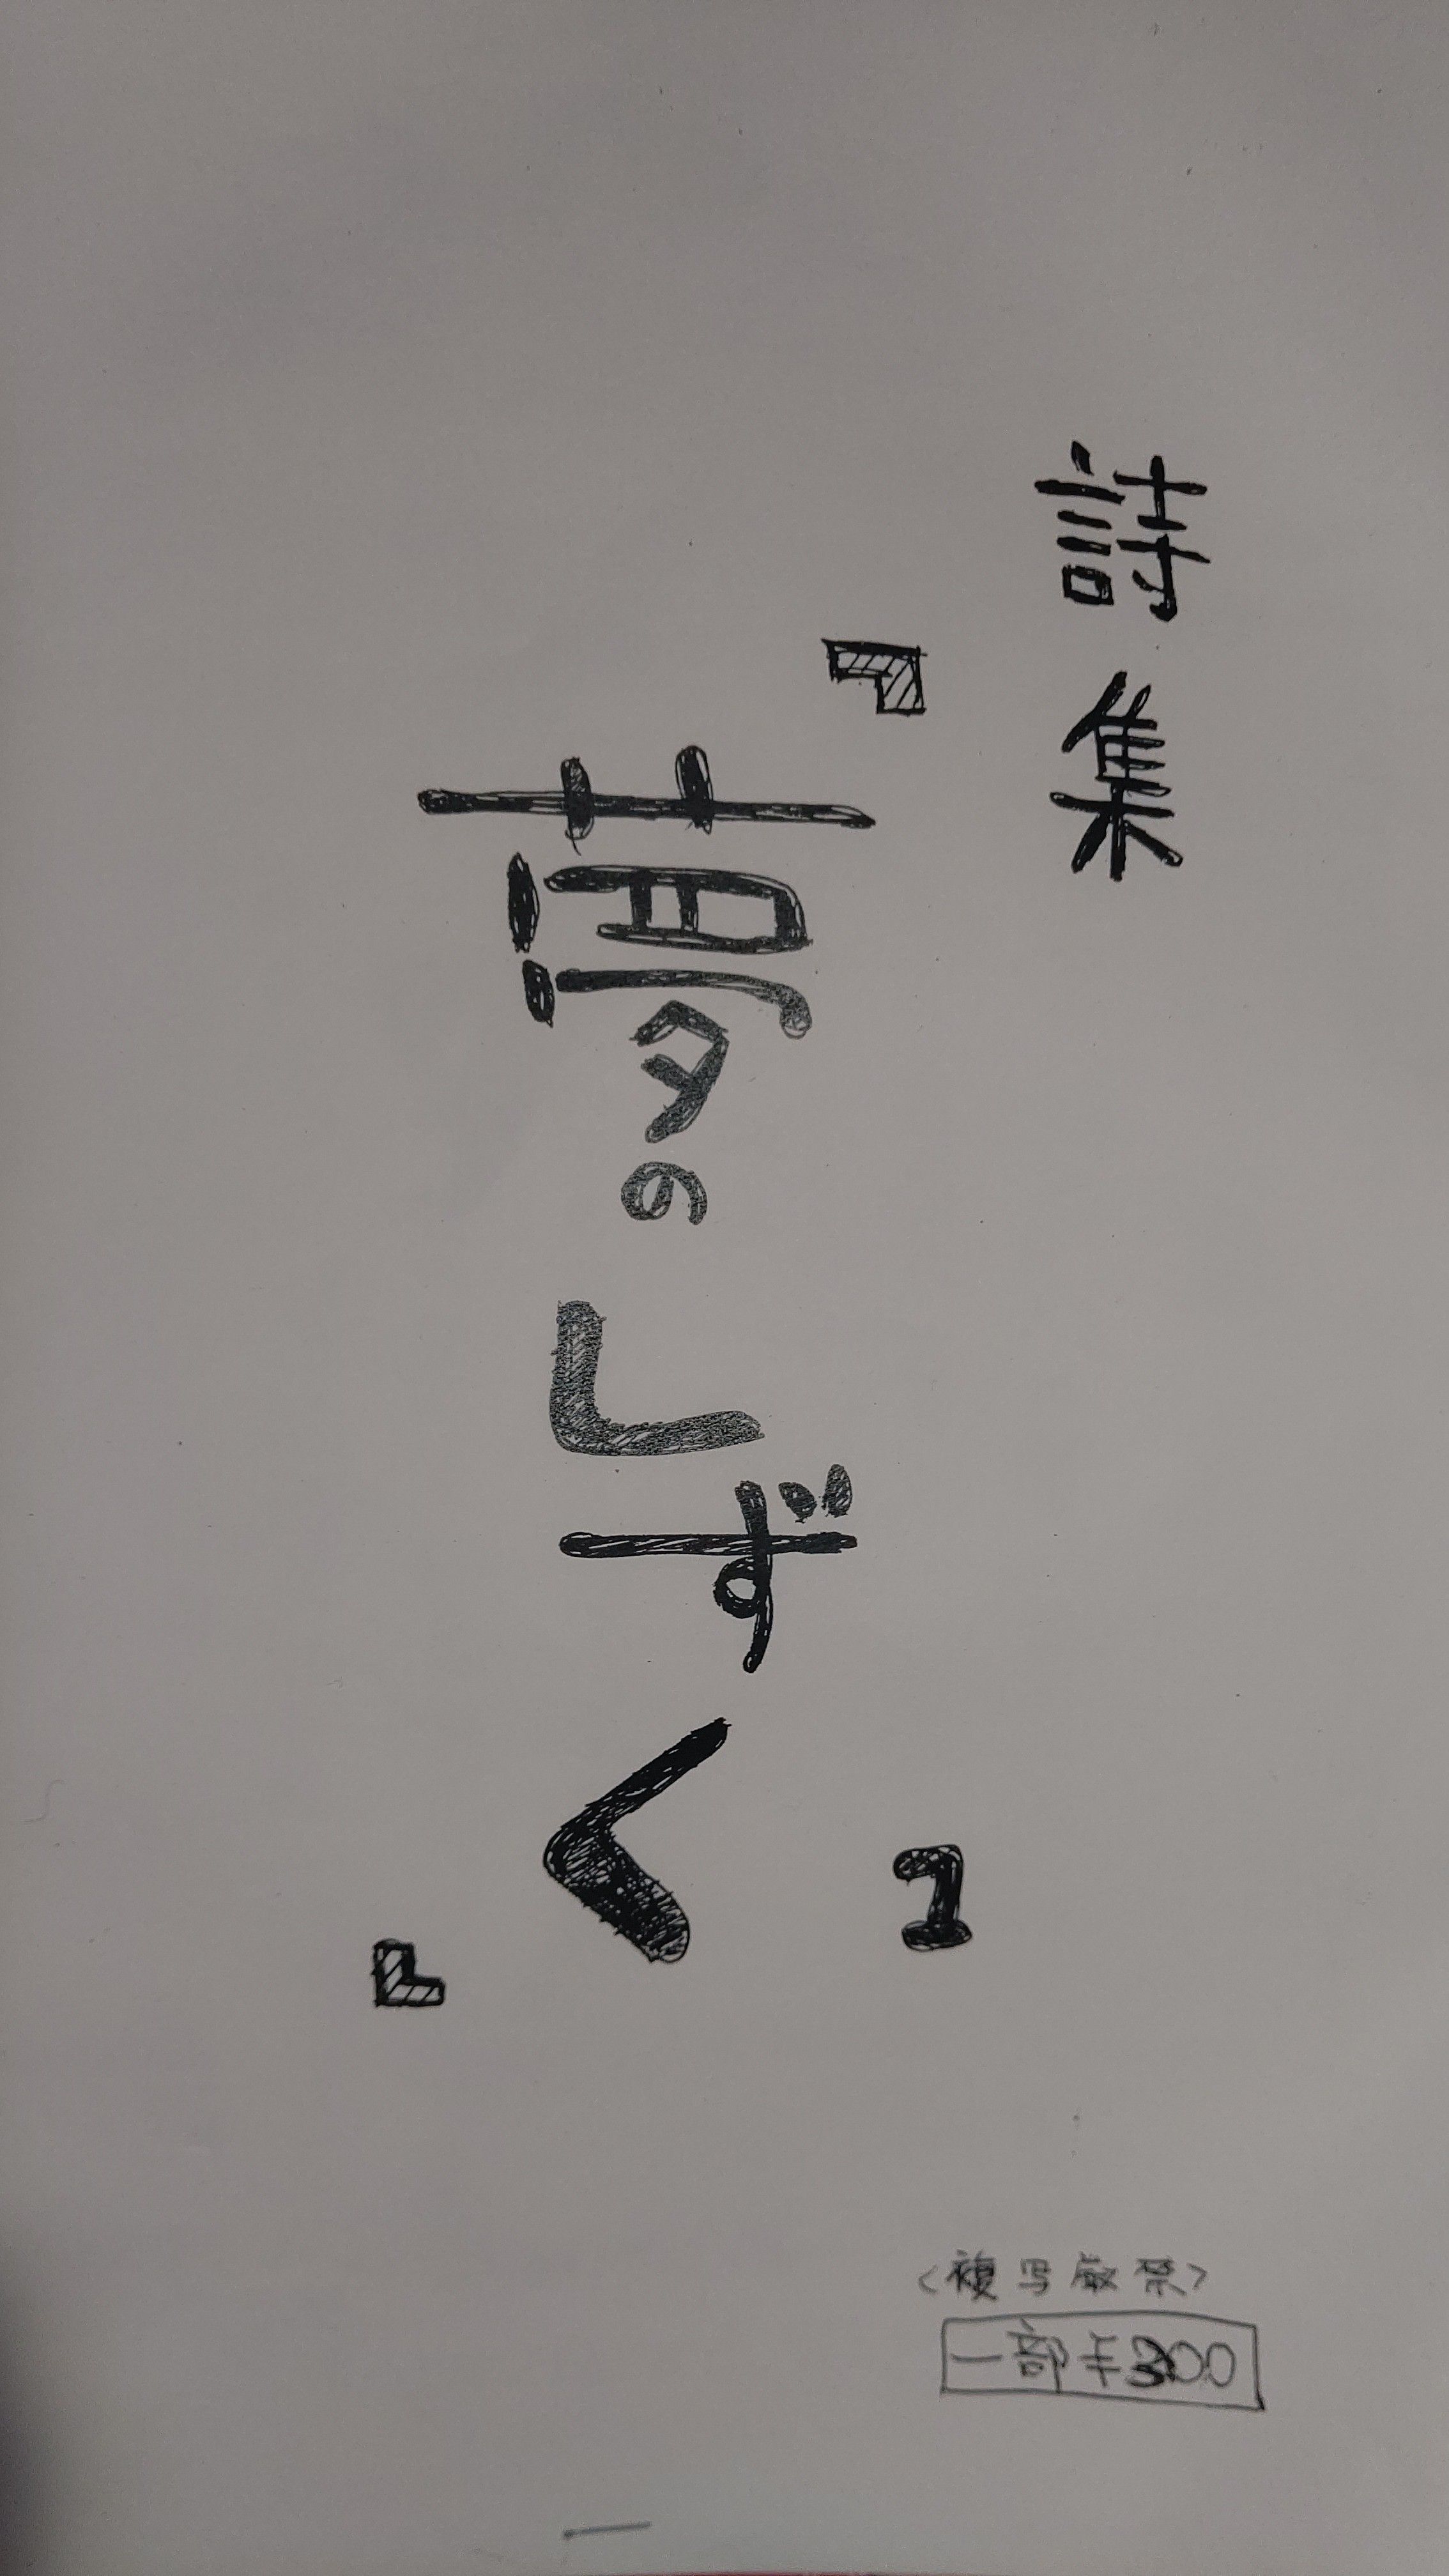 詩集
『夢のしずく』
1
〈複写厳禁〉
一部￥300